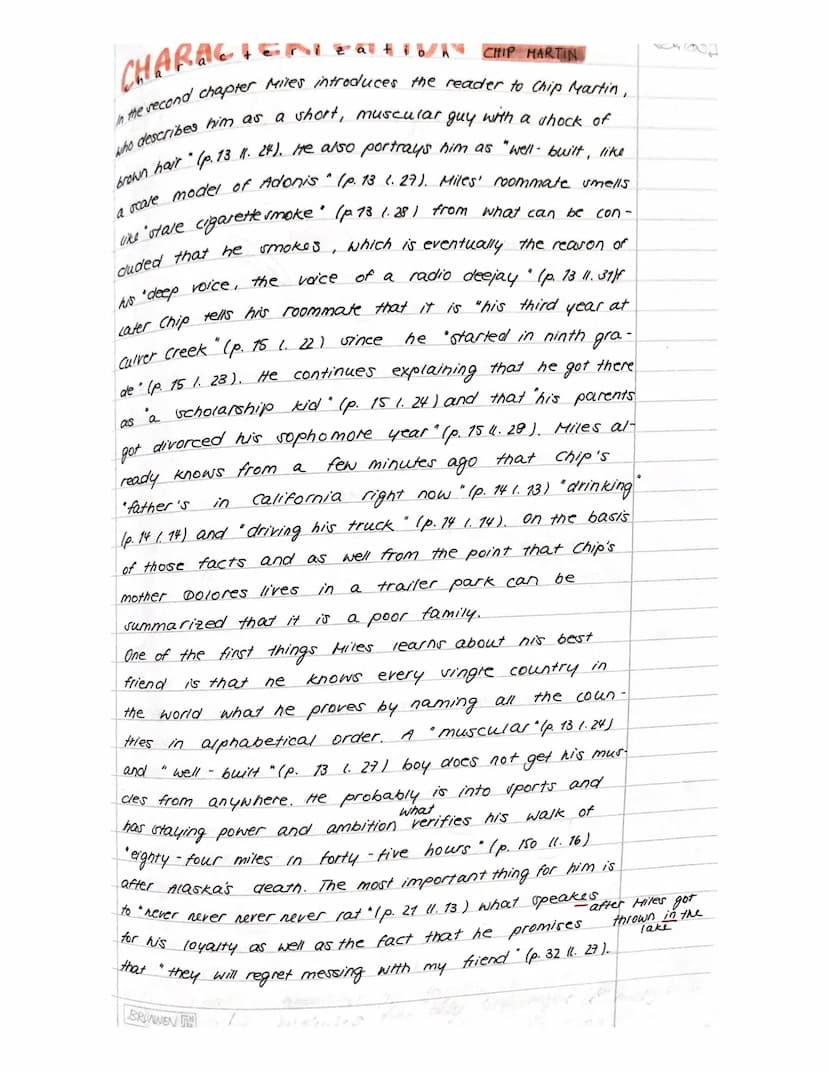 CHARACTERIZATION
Characterization CHIP MARTIN
In the second chapter Miles introduces the reader to Chip Martin,
who describes him as a short, muscular guy with a shock of
brown hair" (p. 13 ll. 24). He also portrays him as "well-built, like
a scale model of Adonis" (p. 13 l. 27). Miles' roommate smells
like "stale cigarette smoke" (p 13 l. 28) from what can be con-
cluded that he smokes, which is eventually the reason of
his "deep voice, the voice of a radio deejay" (p. 13 ll. 31)f
Later Chip tells his roommate that it is "his third year at
Culver Creek" (p. 15 l. 22) since he "started in ninth gra-
de" (p. 15 l. 23). He continues explaining that he got there
as "a scholarship kid" (p. 15 l. 24) and that "his parents
got divorced his sophomore year" (p. 15 ll. 29). Miles al-
ready knows from a few minutes ago that Chip's
"father's in California right now" (p. 14 l. 13) "drinking"
(p. 14 l. 14) and "driving his truck" (p. 14 l. 14). On the basis
of those facts and as well from the point that Chip's
mother Dolores lives in a trailer park can be
summarized that it is a poor family.
One of the first things Miles learns about his best
friend is that he knows every single country in
the world what he proves by naming all the coun-
tries in alphabetical order. A "muscular" (p. 13 l. 24)
and "well-built" (p. 13 l. 27) boy does not get his mus-
cles from anywhere. He probably is into sports and
what
has staying power and ambition verifies his walk of
"eighty-four miles in forty-five hours" (p. 150 ll. 16)
after Alaska's death. The most important thing for him is
to "never never never never rat" (p. 21 ll. 13) what speakes
after Miles got
thrown in the
lake
for his loyalty as well as the fact that he promises
that "they will regret messing with my friend" (p. 32 ll. 27).
BRUNNEN